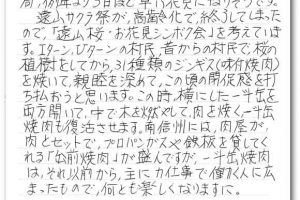 年より5日ほど早いお花見になりそうです。
遠山サクラ祭が、高齢化で、終了してしまった
ので、「遠山桜・お花見シンボク会」を考えていま
す。Iターン、Uターンの村民、昔からの村民で、桜の
植樹をしてから、3〜4種類のジンギス(味付焼肉)
を焼いて、親睦を深めて、この頃の閉促感を打
ち払おうと思います。この時、横にした一斗缶を
両方開いて、中で木を燃やして、肉を焼く、一斗缶
焼肉も復活させます。南信州には、肉屋が、
肉とセットで、プロパンガスや鉄板を貸してく
れる「出前焼肉」が盛んですが、一斗缶焼肉
は、それ以前から、主に力仕事で働く人に広
まったもので、何とも楽しくなりますに。